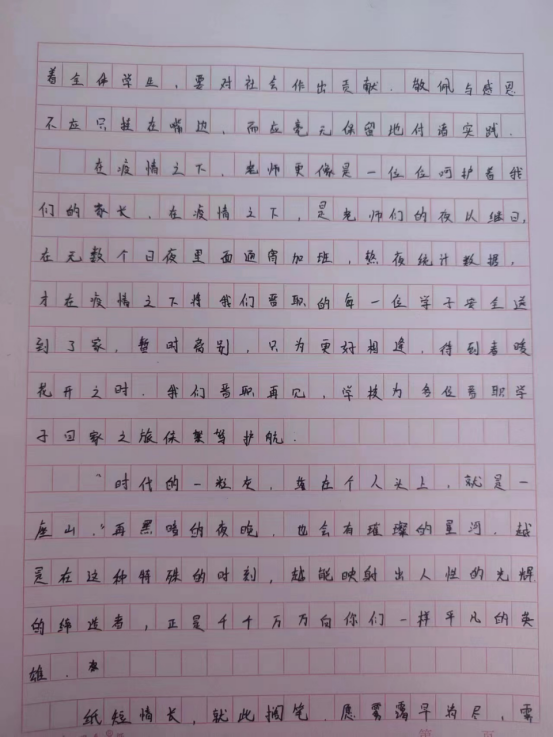 着全体学业，要对社会作出贡献．敬佩与感恩
不应只挂在嘴边，而应毫无保留地付诸实践．
在疫情之下，老师更像是一位位呵护着我
们的家长．在疫情之下，是老师们的夜以继日，
在无数个日夜里面通宵加班，熬夜统计数据，
才在疫情之下将我们晋职的每一位学子安全送
到了家，暂时离别，只为更好相逢，待到春暖
花开之时．我们晋职再见，学校为各位晋职学
子回家之旅保驾护航．
“时代的一粒灰，落在个人头上，就是一
座山．”再黑暗的夜晚，也会有璀璨的星河．越
是在这种特殊的时刻，越能映射出人性的光辉
的缔造者，正是千千万万向你们一样平凡的英
雄．
纸短情长，就此搁笔，愿雾霭早为尽，